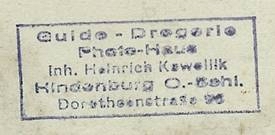 Guido - Drogerie
Photo-Haus
Inh. Heinrich Kawellik
Hindenburg O.-Schl.
Dorotheenstraße 96